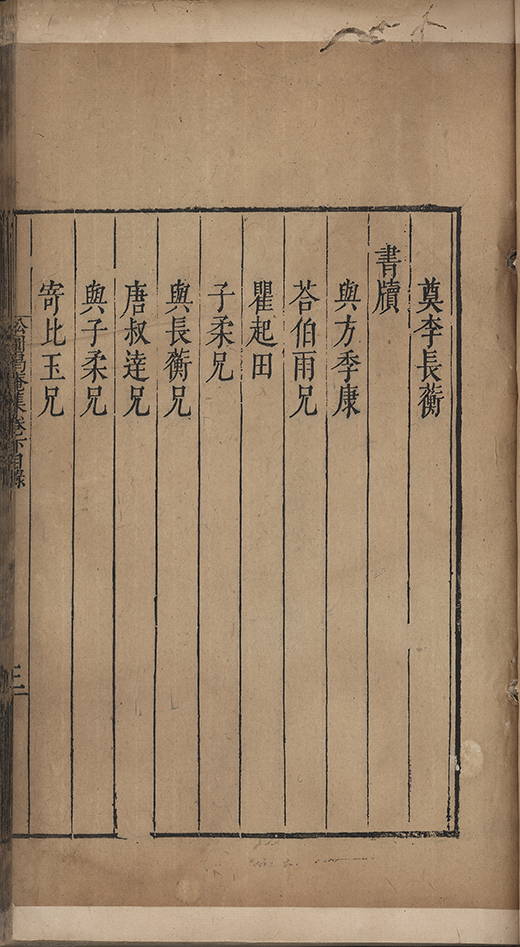 奠李長蘅
書牘
與方季康
荅伯雨兄
瞿起田
子柔兄
與長蘅兄
唐叔達兄
與子柔兄
寄比玉兄
松圓偈庵集卷下目錄
三